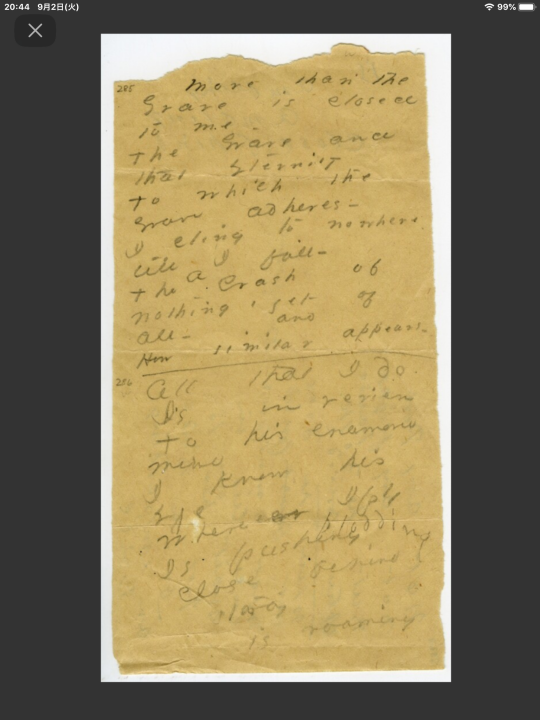 20:44 9月2日(火) 99%
285 more than the
Grave is closed
to me -
the Grave and
that Eternity
to which the
Grave adheres -
I cling to nowhere
till I fall -
the Crash of
nothing, yet of
all -
How similar appears -
286 All that I do
Is in review
to his enamored
mind
I know his
eye
Where e'er I ply
Is pushing plodding
close behind
is roaming